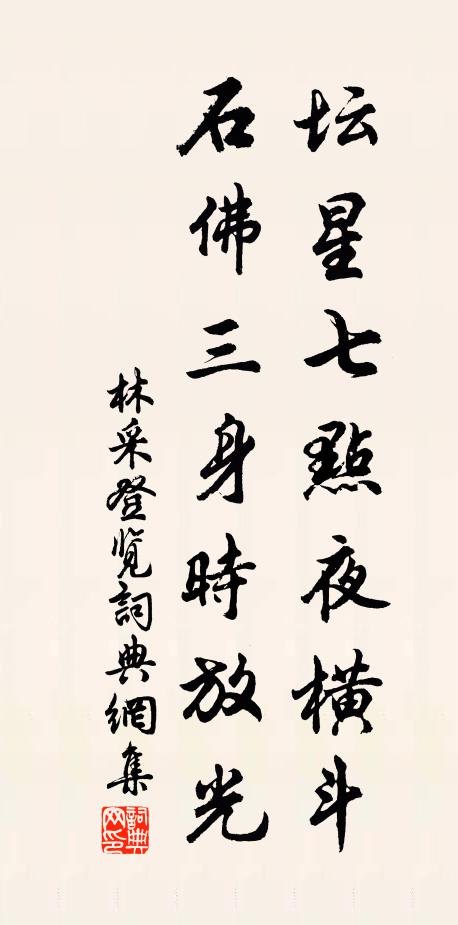 坛星七點夜橫斗
石佛三身時放光
林采登览詞典網集
詞典网印